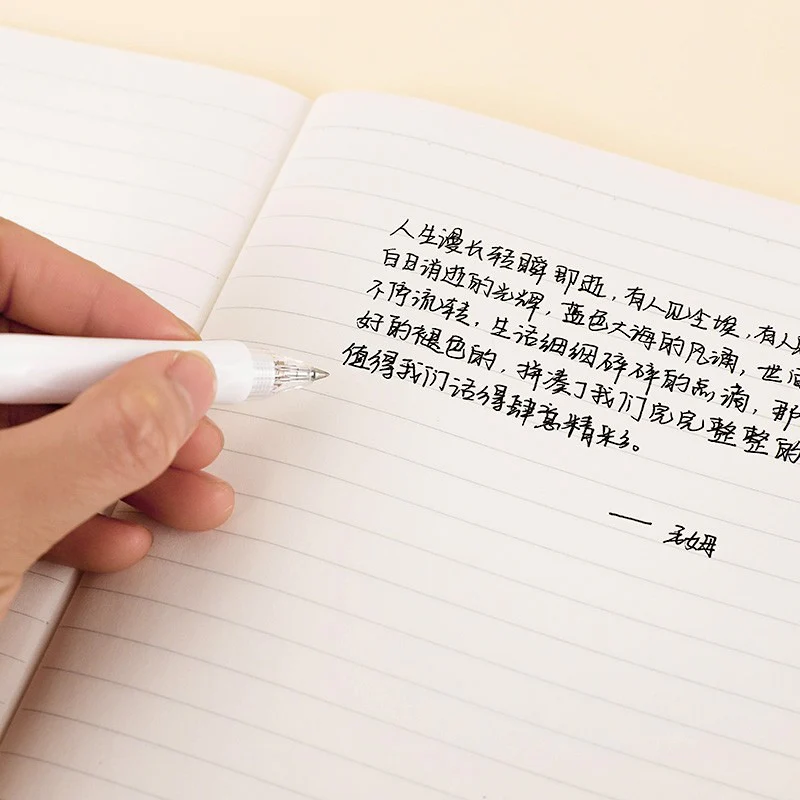 人生漫长轻瞬即逝，有人见尘埃，有人
白日消逝的光辉，蓝色大海的几滴，世
不停流转，生活细细碎碎的点滴，那
好的褪色的，拼凑了我们完完整整的
值得我们活得肆意精彩。
—— 毛姆